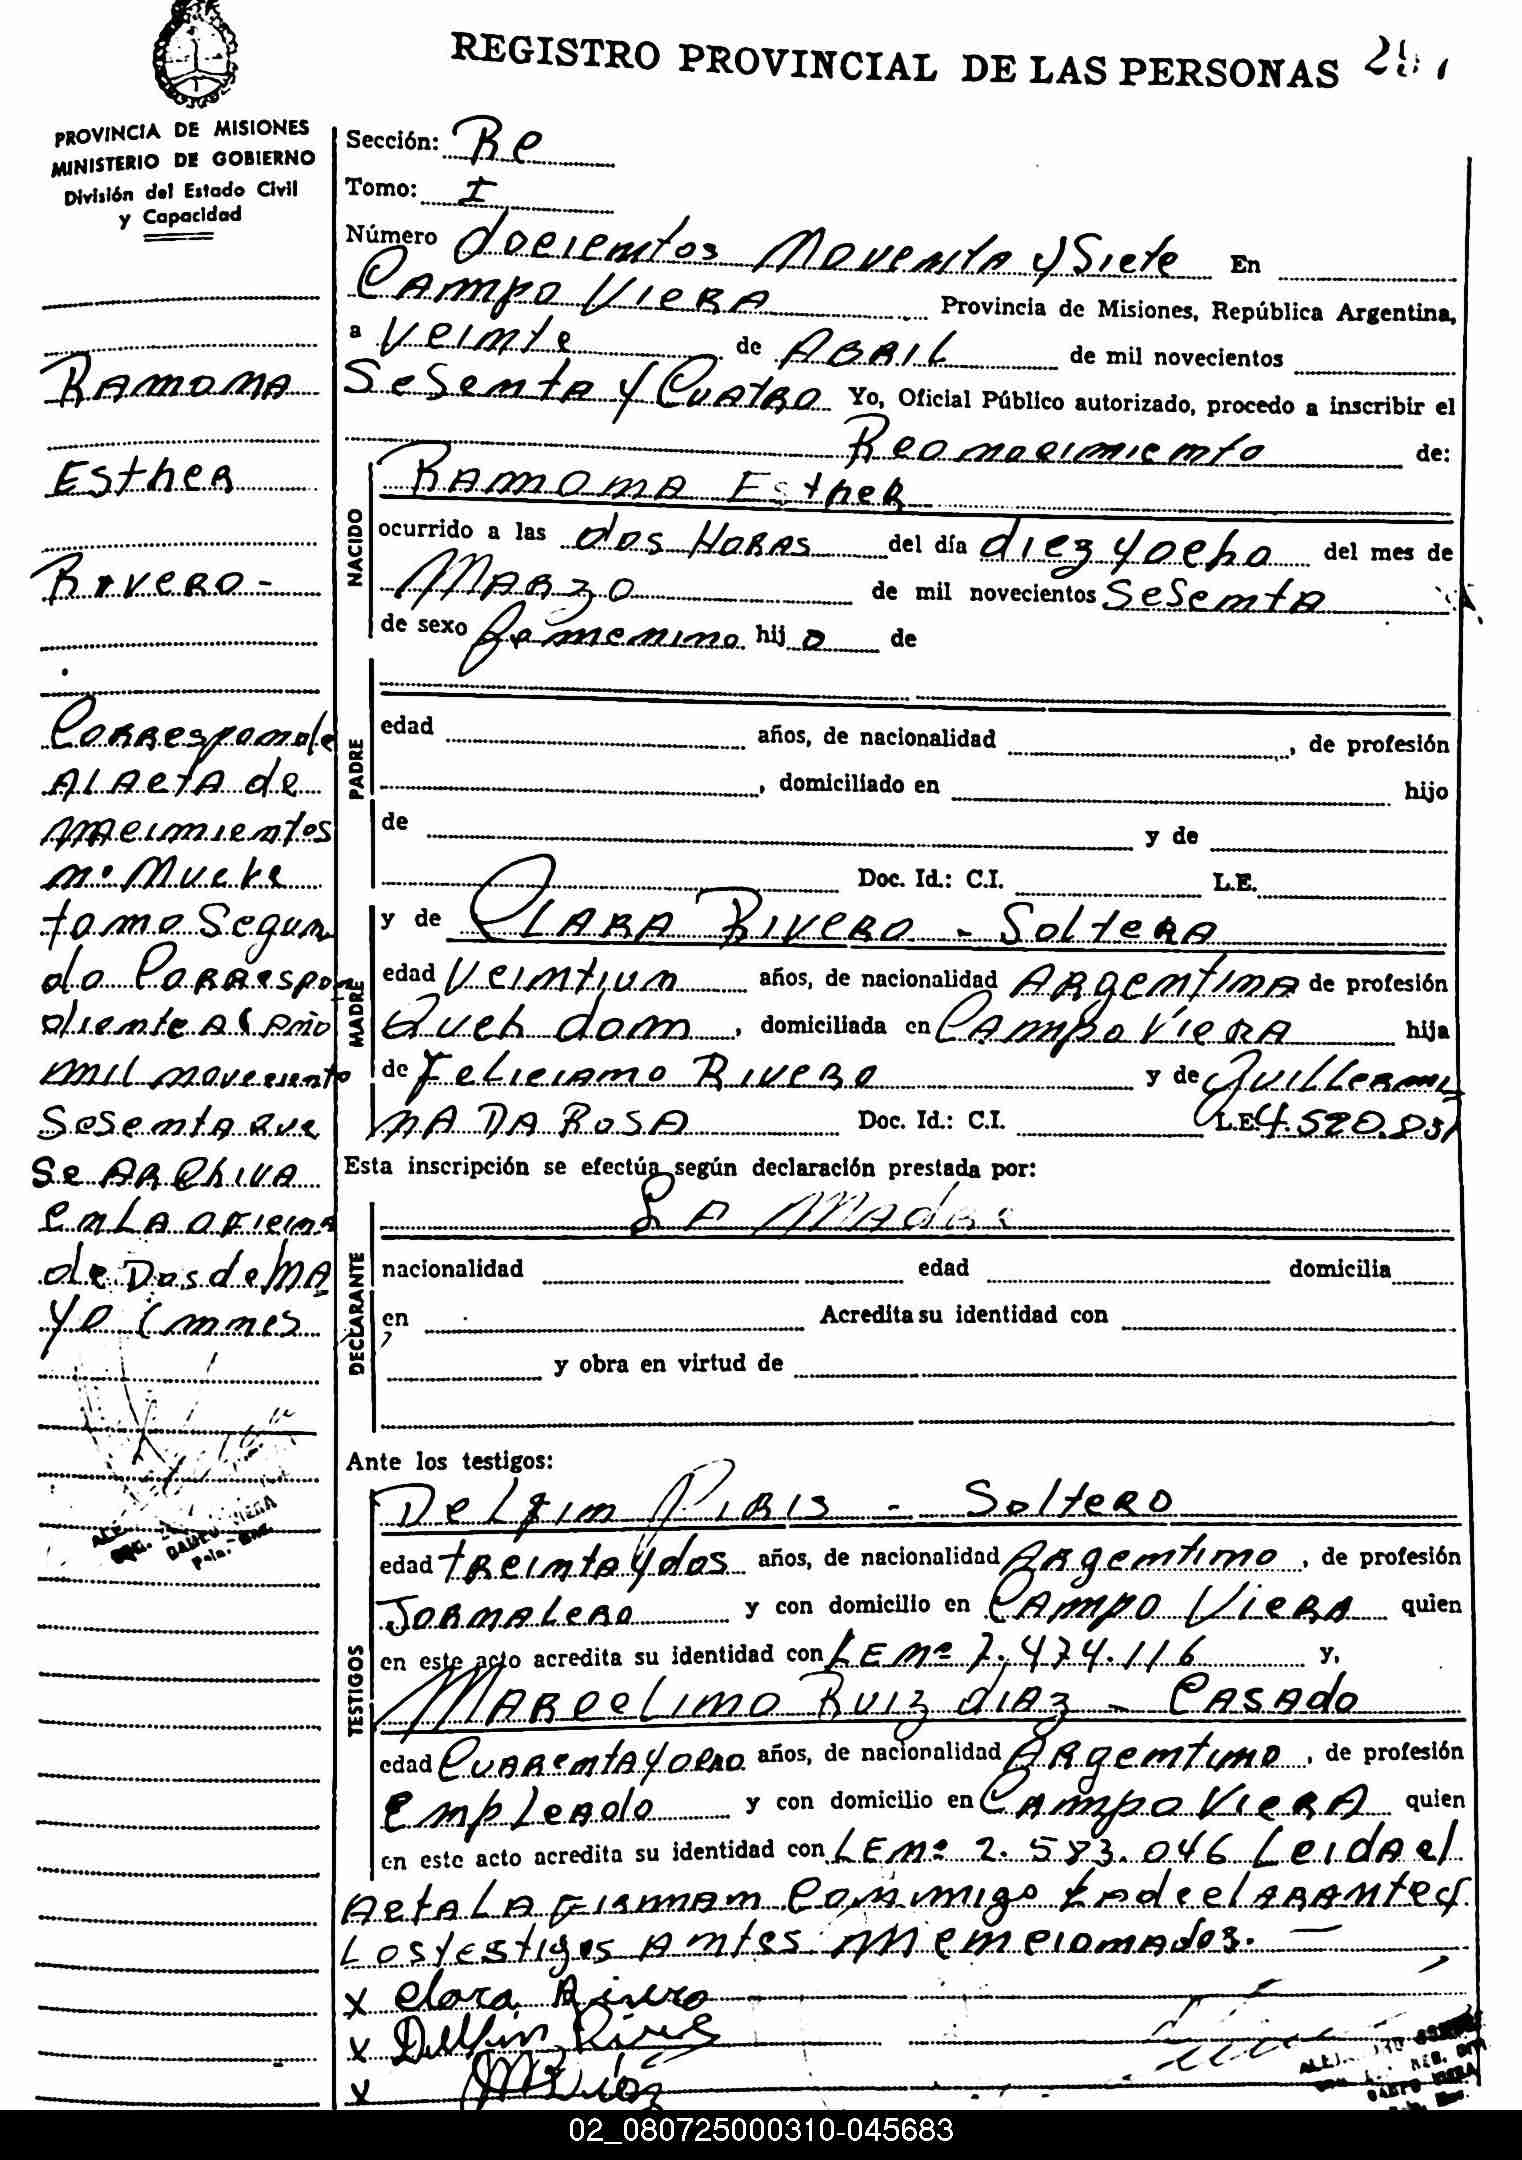 REGISTRO PROVINCIAL DE LAS PERSONAS
PROVINCIA DE MISIONES
MINISTERIO DE GOBIERNO
División del Estado Civil
y Capacidad
Sección: Re
Tomo: I
Número docientos Noventa y Siete En
Campo Viera Provincia de Misiones, República Argentina,
a Veinte de ABRIL de mil novecientos
Sesenta y Cuatro Yo, Oficial Público autorizado, procedo a inscribir el
Reonocimiento de:
NACIDO
RAMONA EstheR
ocurrido a las dos HORAS del día diez y ocho del mes de
MARZO de mil novecientos Sesenta
de sexo femenino hij o de
PADRE
edad años, de nacionalidad , de profesión
, domiciliado en hijo
de y de
Doc. Id.: C.I. L.E.
MADRE
y de CLARA RIVERO - Soltera
edad Veintiun años, de nacionalidad Argentina de profesión
Queh dom , domiciliada en Campo Viera hija
de Feliciano Rivero y de Guillermi
NA DA ROSA Doc. Id.: C.I. L.E.
Esta inscripción se efectúa según declaración prestada por:
DECLARANTE
LA MADRE
nacionalidad edad domicilia
en Acredita su identidad con
y obra en virtud de
Ante los testigos:
TESTIGOS
Delfin PIRIS - Soltero
edad treinta y dos años, de nacionalidad Argentino , de profesión
Jornalero y con domicilio en Campo Viera quien
en este acto acredita su identidad con LE Nº 7.474.116 y,
MARCELINO RUIZ DIAZ - CASADO
edad Cuarenta y ocho años, de nacionalidad Argentino , de profesión
Empleado y con domicilio en Campo Viera quien
en este acto acredita su identidad con LE Nº 2.583.046 Leida el
Acta LA Firmam Commigo LA declarante y
Los testigos Antes Mencionados.
x Clara Rivero
x Delfin Piris
x
RAMONA
Esther
Rivero -
Corresponde
Al Acta de
nacimientos
nº Nueve
tomo Segun
do Correspon
diente Al Año
mil noveciento
Sesenta que
Se ARchiva
en LA oficina
de Dos de MA
YO
02_080725000310-045683